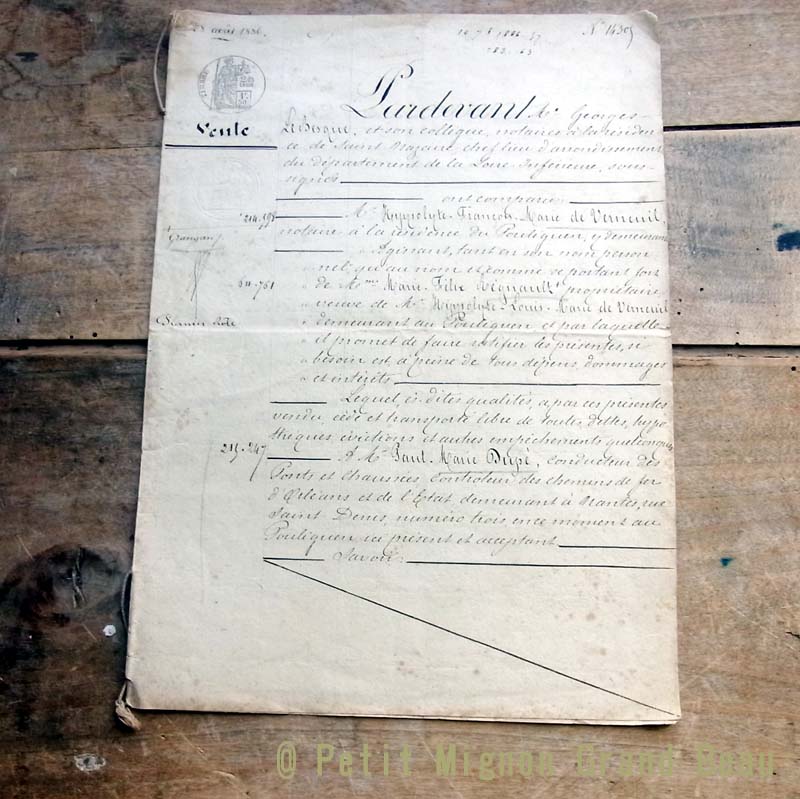 28 août 1886.
Nº 14305
Vente
Pardevant Me Georges
Lebesque, et son collègue, notaires à la résiden-
ce de Saint Nazaire, chef lieu d'arrondissement
du département de la Loire-Inférieure, sous-
signés
ont comparu:
Mr Hippolyte-François-Marie de Verneuil,
notaire à la résidence du Pouliguen, y demeurant
Agissant, tant en son nom person-
nel, qu'au nom et comme se portant fort
de Mme Marie-Félix propriétaire,
veuve de Mr Hippolyte-Louis-Marie de Verneuil
demeurant au Pouliguen et par laquelle
il promet de faire ratifier les présentes, si
besoin est, à peine de tous dépens, dommages
et intérêts.
Lequel, ès dites qualités, a, par ces présentes
vendu, cédé et transporté libre de toutes dettes, hypo-
thèques, évictions et autres empêchements quelconques
215.247
A Mr Paul-Marie Dupé, conducteur des
Ponts et chaussées, contrôleur des chemins de fer
d'Orléans et de l'Etat demeurant à Nantes, rue
Saint Denis, numéro trois, en ce moment au
Pouliguen, ici présent et acceptant
Savoir:
@ Petit Mignon Grand Beau